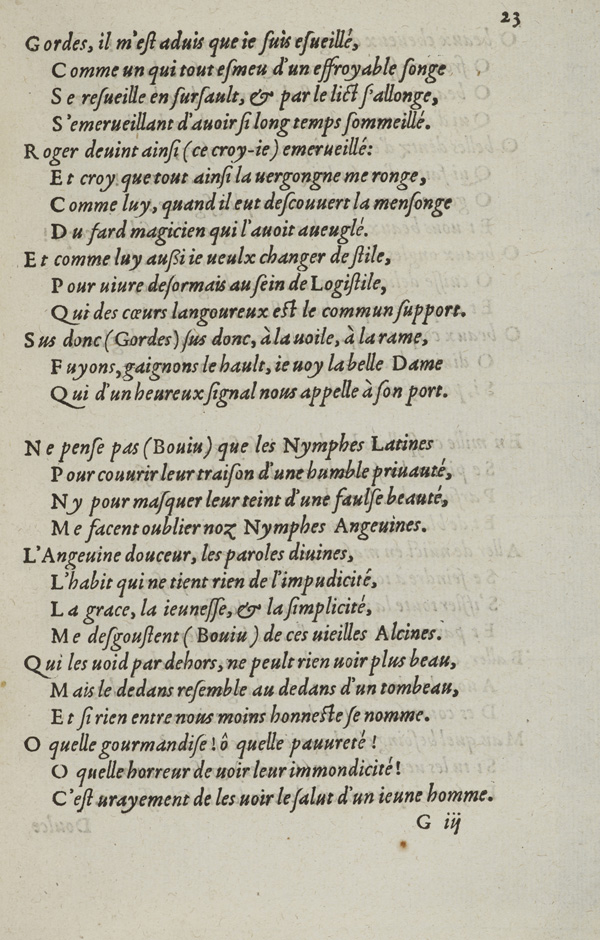 23
Gordes, il m'eſt aduis que ie ſuis eſueillé,
Comme un qui tout eſmeu d'un effroyable ſonge
Se reſueille en ſurſault, & par le lict ſ'allonge,
S'emerueillant d'auoir ſi long temps ſommeillé.
Roger deuint ainſi (ce croy-ie) emerueillé:
Et croy que tout ainſi la uergongne me ronge,
Comme luy, quand il eut deſcouuert la menſonge
Du fard magicien qui l'auoit aueuglé.
Et comme luy außi ie ueulx changer de ſtile,
Pour uiure deſormais au ſein de Logiſtile,
Qui des cœurs langoureux eſt le commun ſupport.
Sus donc (Gordes) ſus donc, à la uoile, à la rame,
Fuyons, gaignons le hault, ie uoy la belle Dame
Qui d'un heureux ſignal nous appelle à ſon port.
Ne penſe pas (Bouiu) que les Nymphes Latines
Pour couurir leur traiſon d'une humble priuauté,
Ny pour maſquer leur teint d'une faulſe beauté,
Me facent oublier noz Nymphes Angeuines.
L'Angeuine douceur, les paroles diuines,
L'habit qui ne tient rien de l'impudicité,
La grace, la ieuneſſe, & la ſimplicité,
Me deſgouſtent (Bouiu) de ces uieilles Alcines.
Qui les uoid par dehors, ne peult rien uoir plus beau,
Mais le dedans reſemble au dedans d'un tombeau,
Et ſi rien entre nous moins honneſte ſe nomme.
O quelle gourmandiſe! ô quelle pauureté!
O quelle horreur de uoir leur immondicité!
C'eſt urayement de les uoir le ſalut d'un ieune homme.
G iij